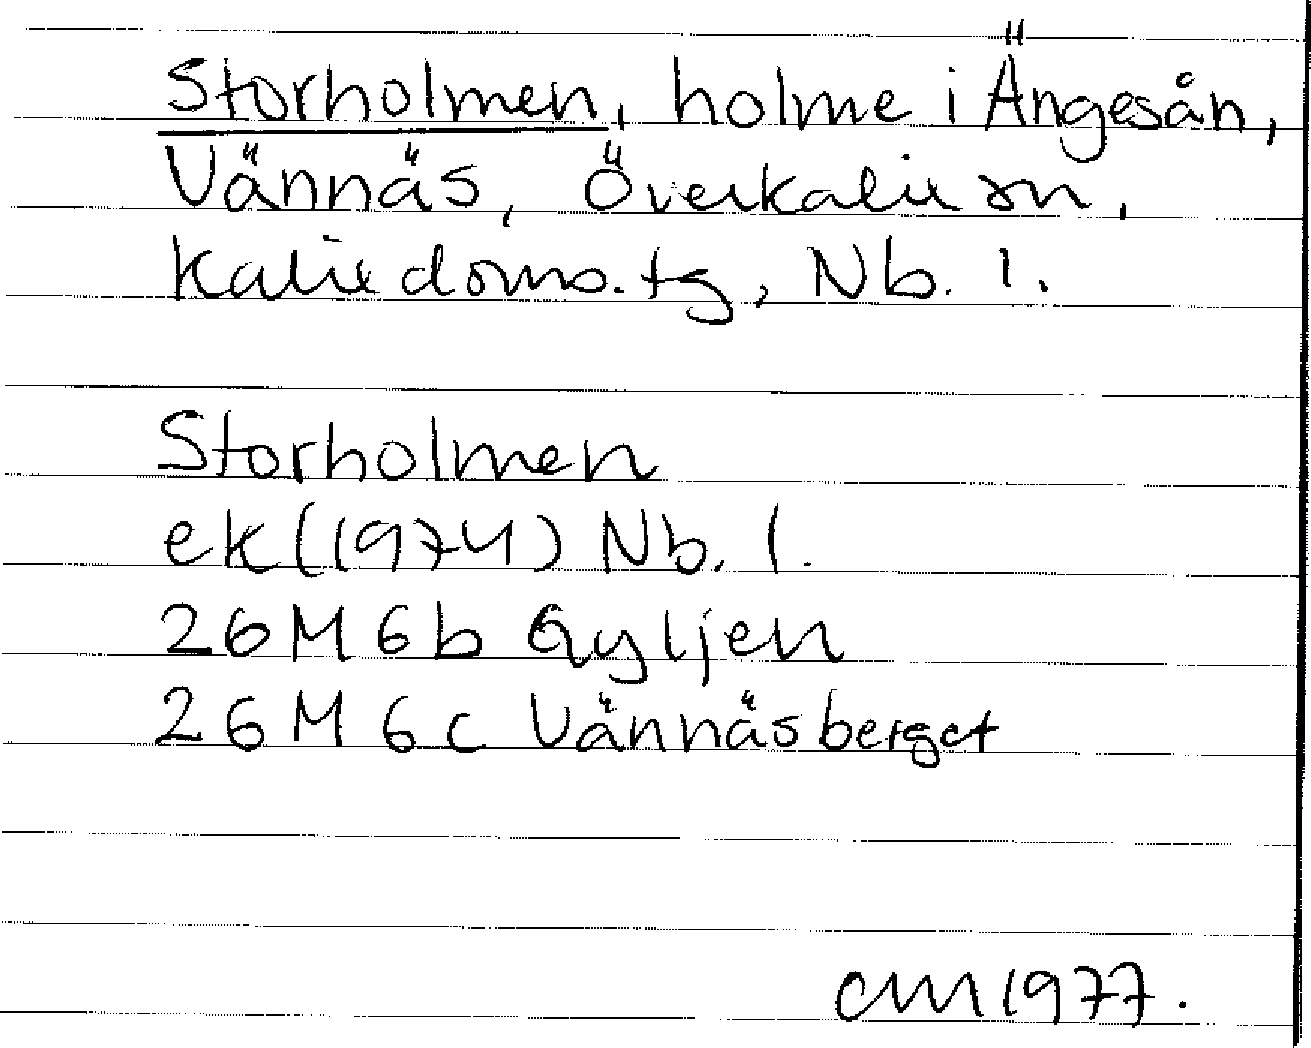 Storholmen, holme i Ängesån,
Vännäs, Överkalix sn,
Kalix doms. tg, Nb. l.
Storholmen
ek (1974) Nb. l.
26 M 6 b Gyljen
26 M 6 c Vännäsberget
CM 1977.